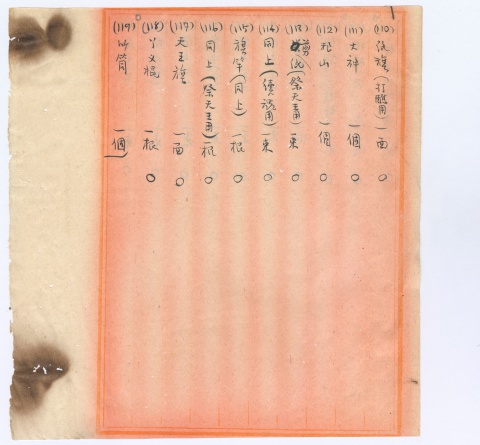 (110) 流旗(打醮用) 一面 ○
(111) 大神 一個 ○
(112) 形山 一個 ○
(113) 剪流(祭天王用) 一束 ○
(114) 同上(續魂用) 一束 ○
(115) 旗竿(同上) 一根 ○
(116) 同上(祭天王用) 一根 ○
(117) 天王旗 一面 ○
(118) 丫叉棍 一根 ○
(119) 竹筒 一個